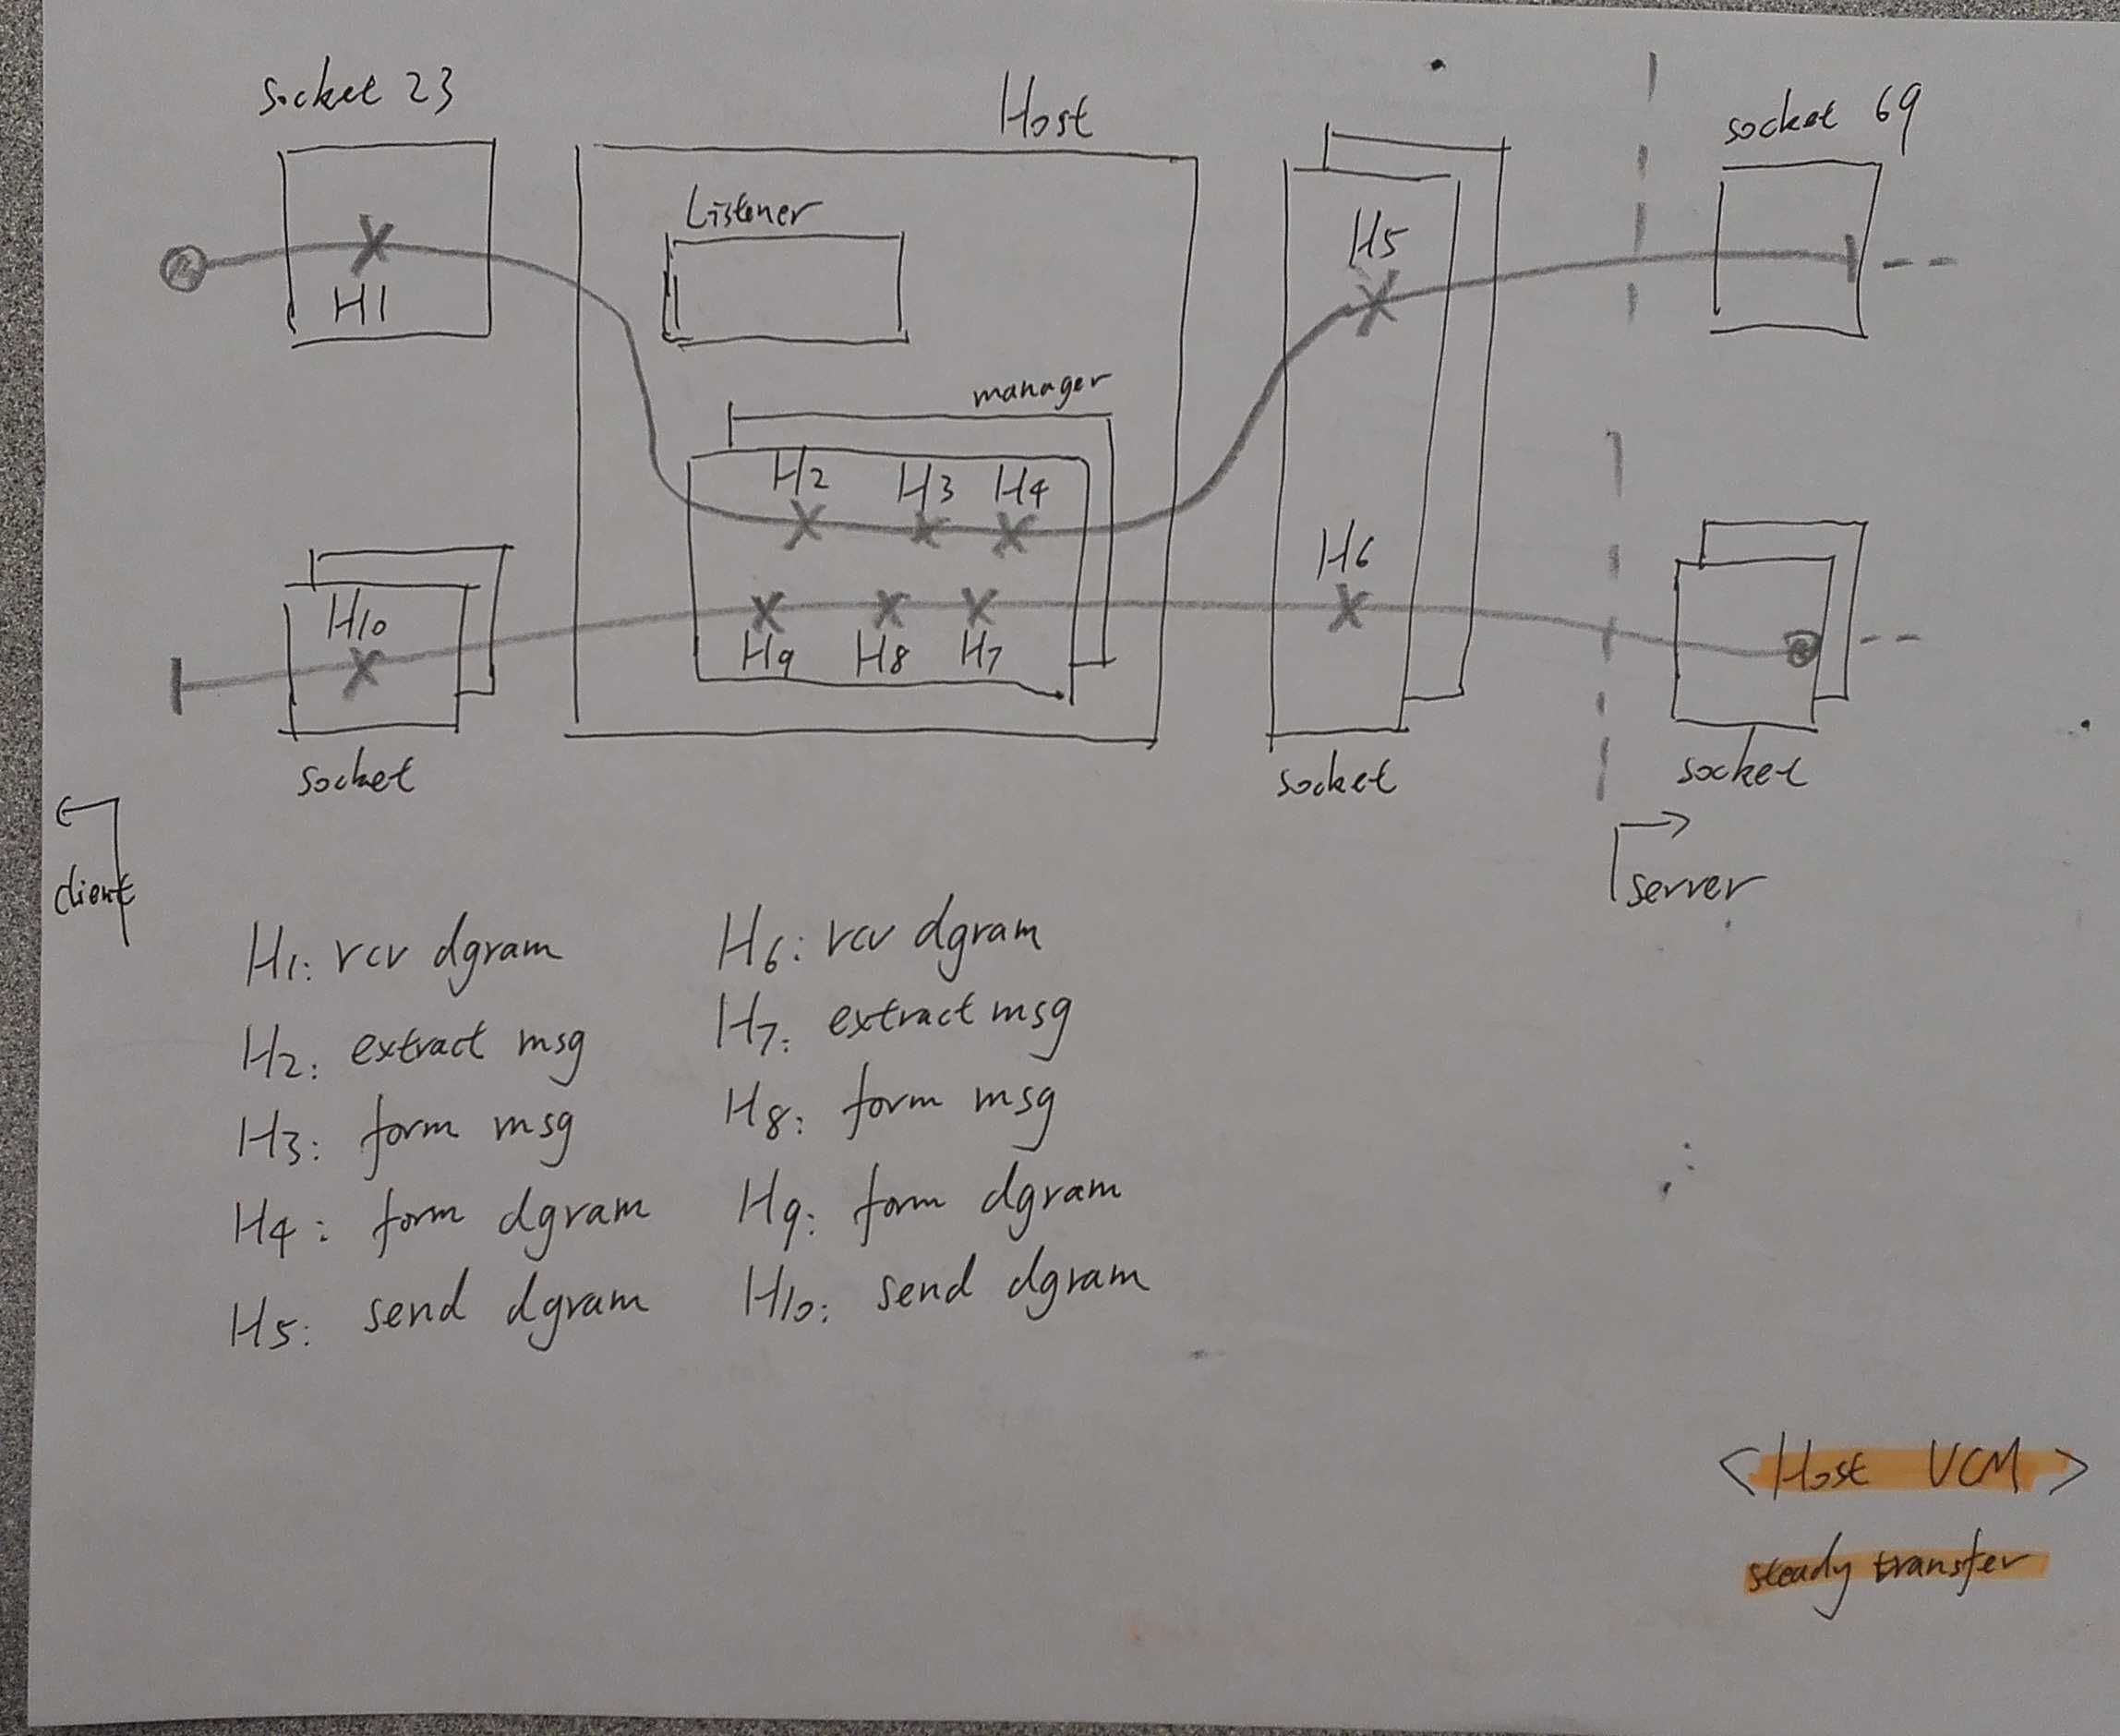 socket 23
Host
socket 69
Listener
H5
H1
manager
H2 H3 H4
H6
H10
H9 H8 H7
socket
socket
socket
client
server
H1: rcv dgram
H2: extract msg
H3: form msg
H4: form dgram
H5: send dgram
H6: rcv dgram
H7: extract msg
H8: form msg
H9: form dgram
H10: send dgram
<Host UCM>
steady transfer